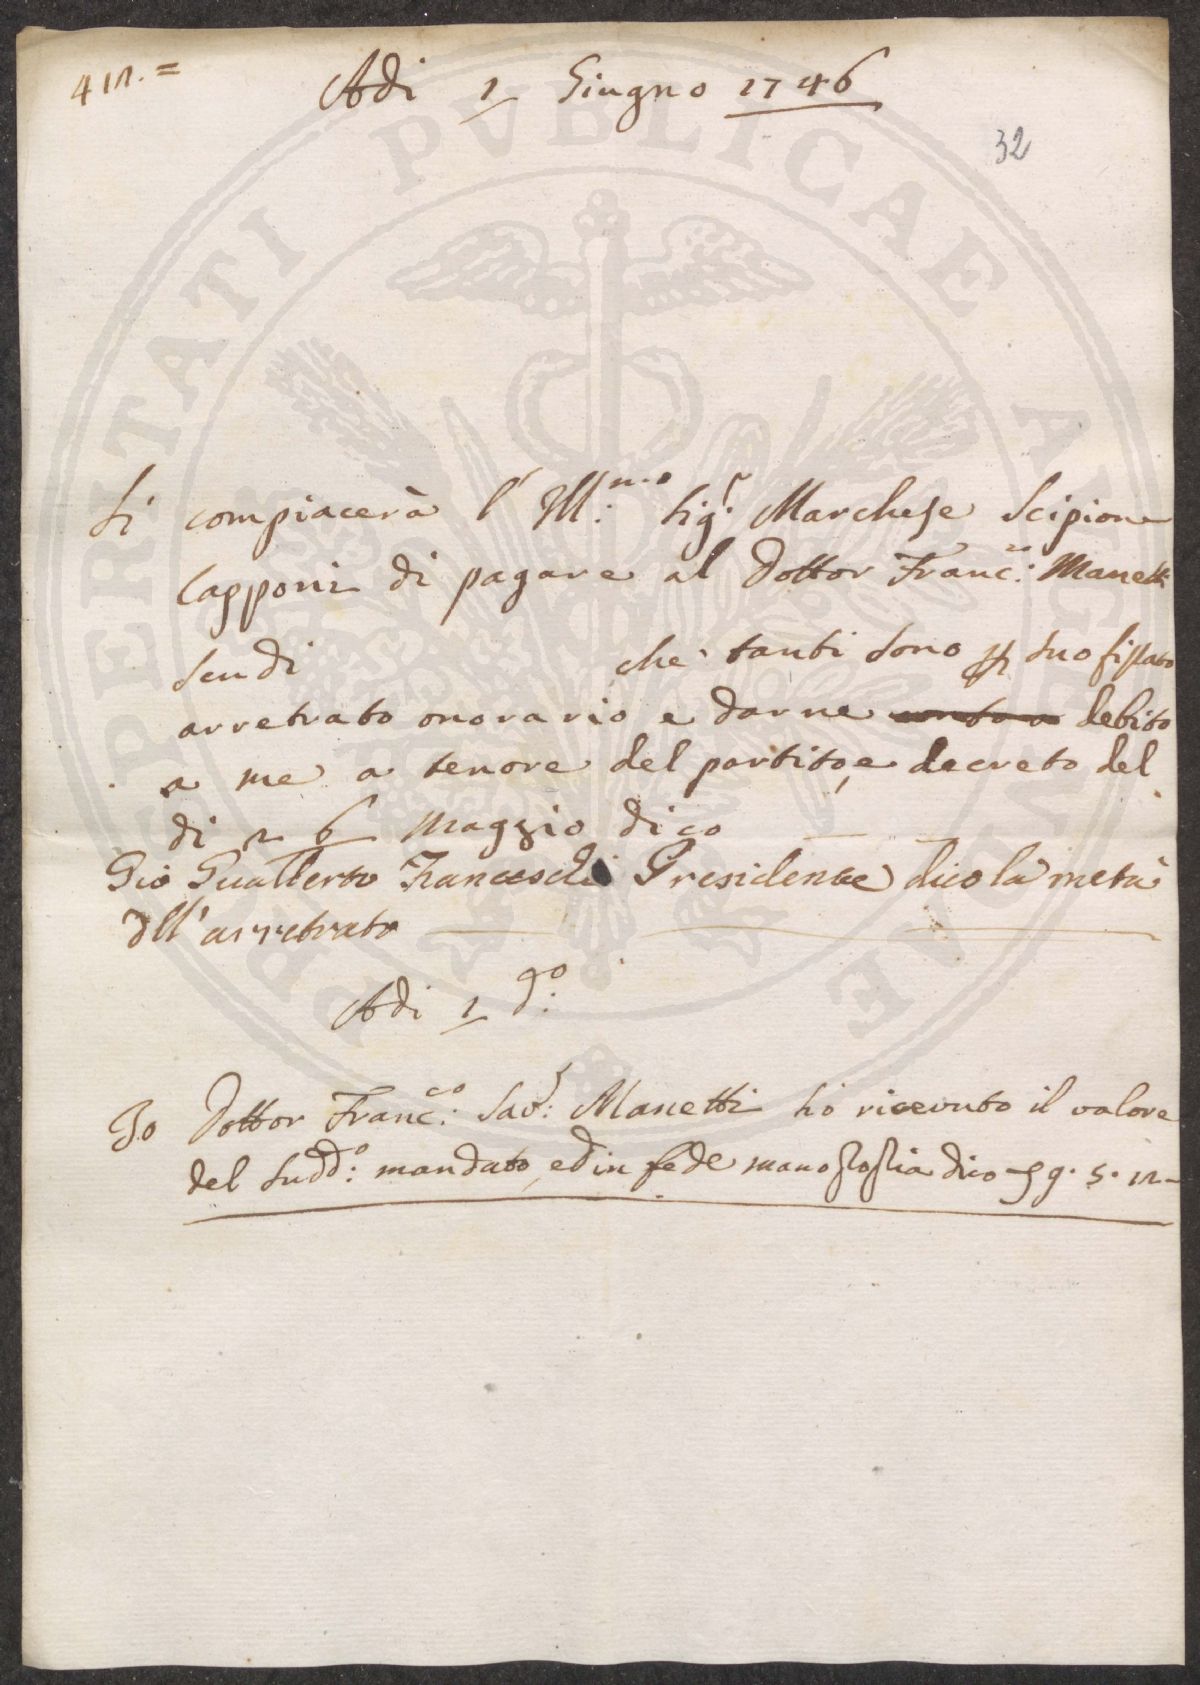 4 12. =
Adi 1 Giugno 1746
32
Si compiacerà l' Ill:mo Sig.r Marchese Scipione
Capponi di pagare al Dottor Franc:co Manetti
scudi che tanti sono p suo fissato
arretrato onorario e darne debito
a me a tenore del partito, e decreto del
di 26 Maggio dico
Gio Gualberto Franceschi Presidente dico la metà
dll' arretrato
Adi 1 do:
Io Dottor Franc:co Sav:r Manetti ho ricevuto il valore
del sudd:o mandato, ed in fede mano propria dico
PROSPERITATI PVBLICAE AVGENDAE